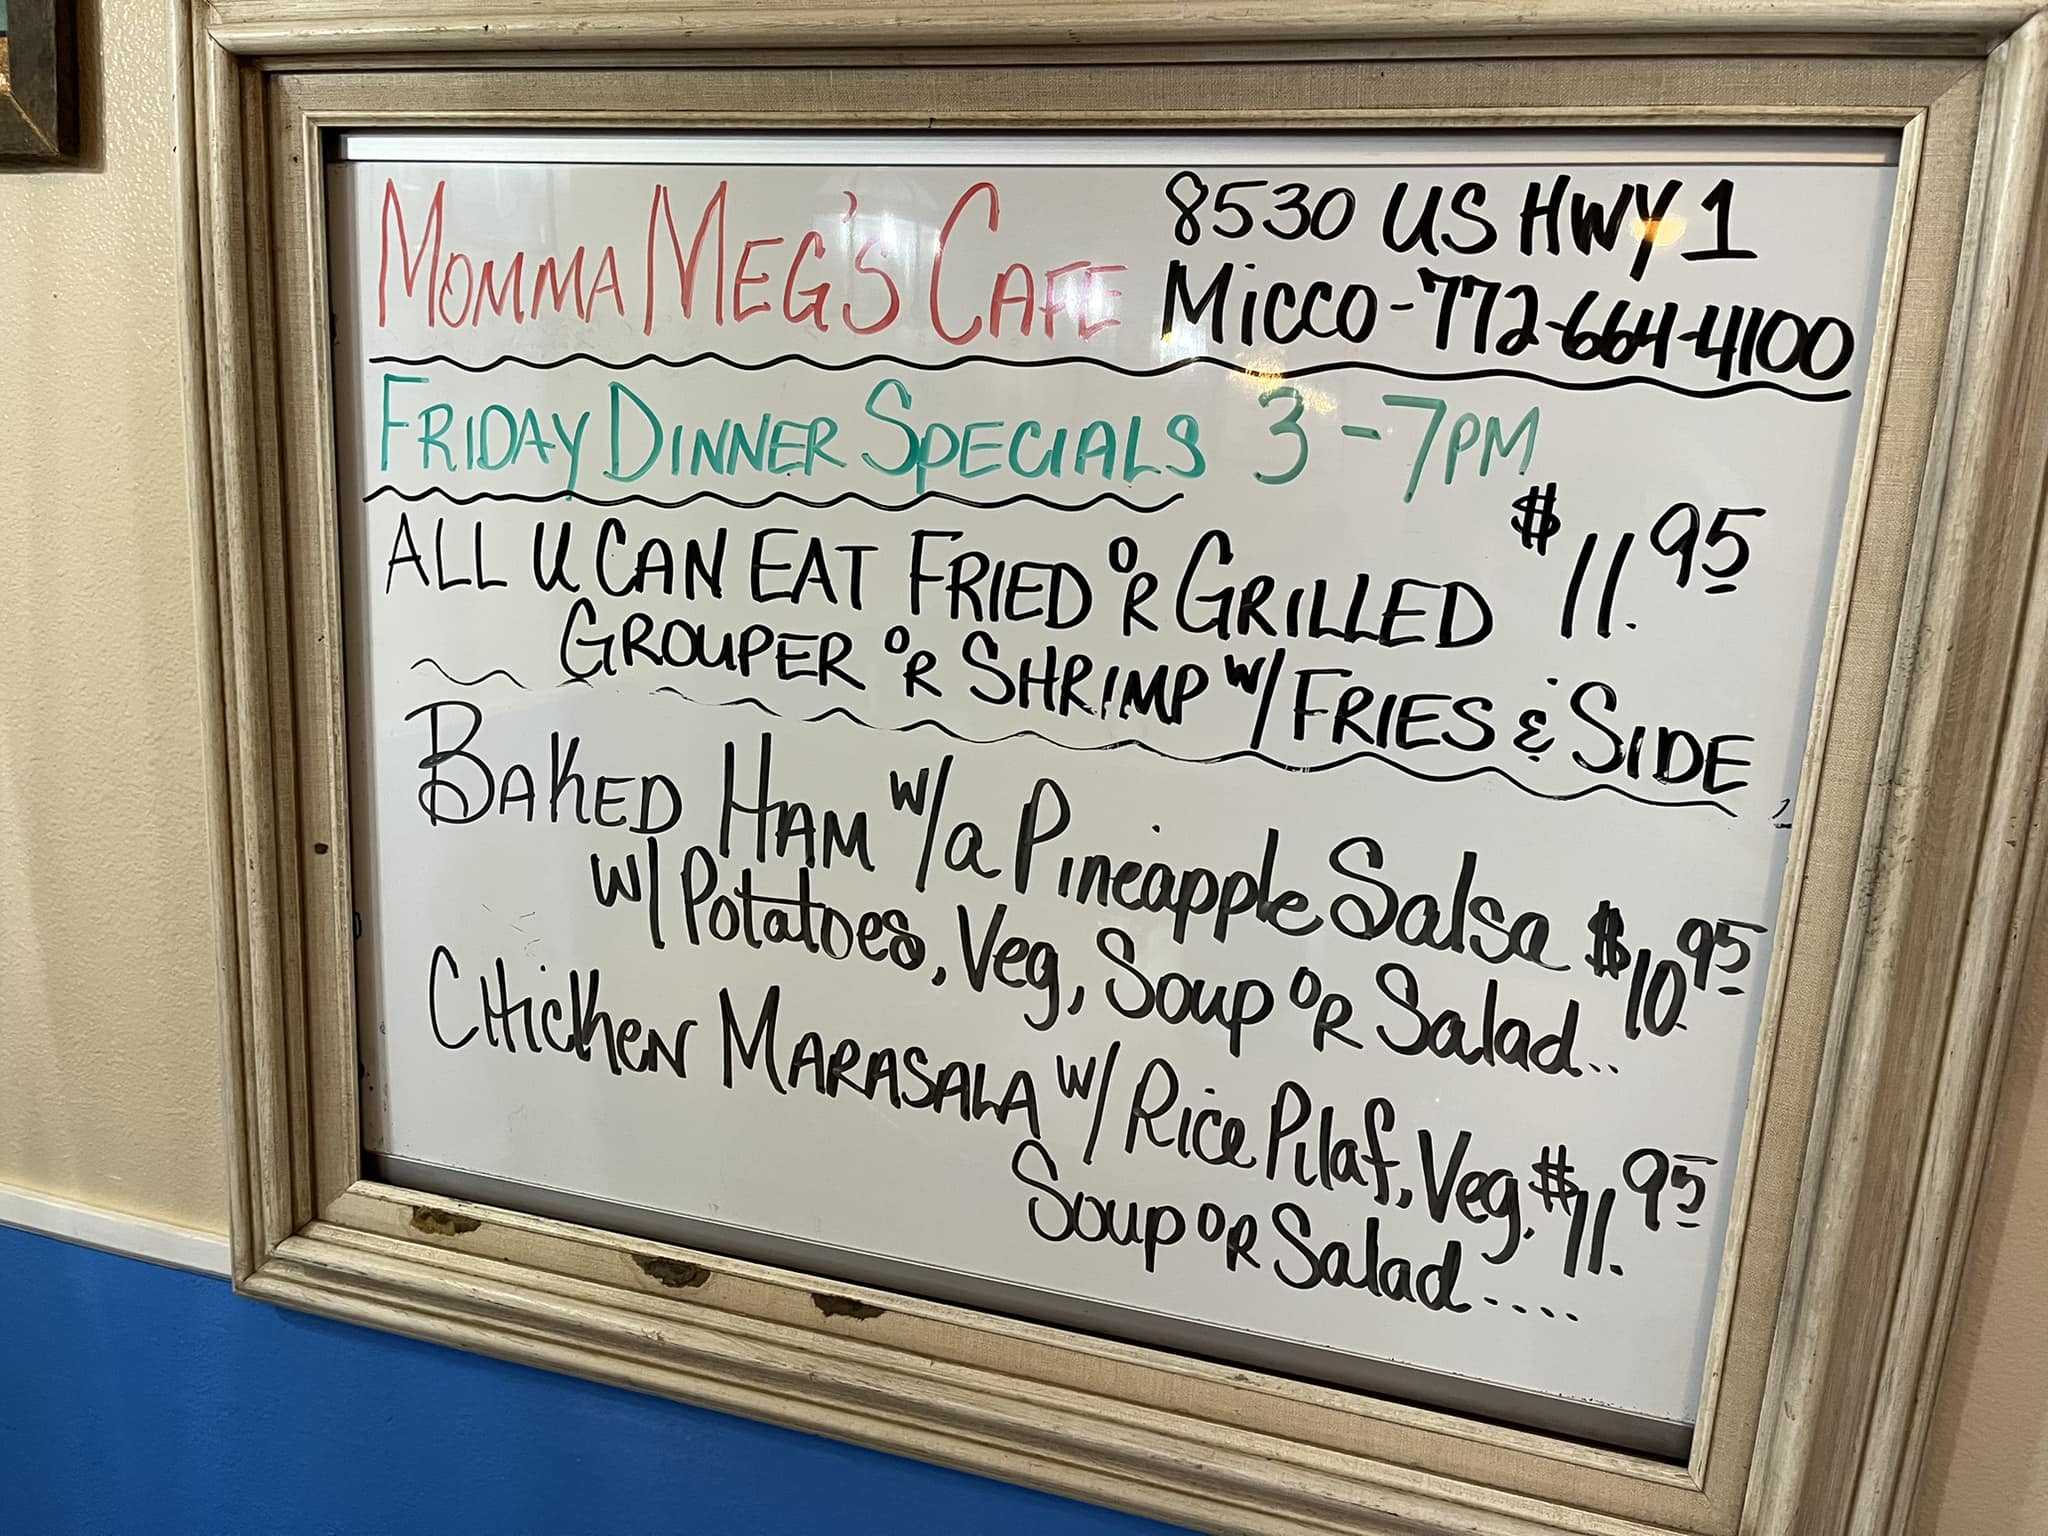 MOMMA MEG'S CAFE
8530 US HWY 1
MICCO - 772-664-4100
FRIDAY DINNER SPECIALS 3-7PM
ALL U CAN EAT FRIED OR GRILLED $11.95
GROUPER OR SHRIMP W/ FRIES & SIDE
BAKED HAM W/a Pineapple Salsa $10.95
W/ Potatoes, Veg, Soup OR Salad..
CHicKeN MARASALA W/ Rice Pilaf, Veg, $11.95
Soup OR Salad....